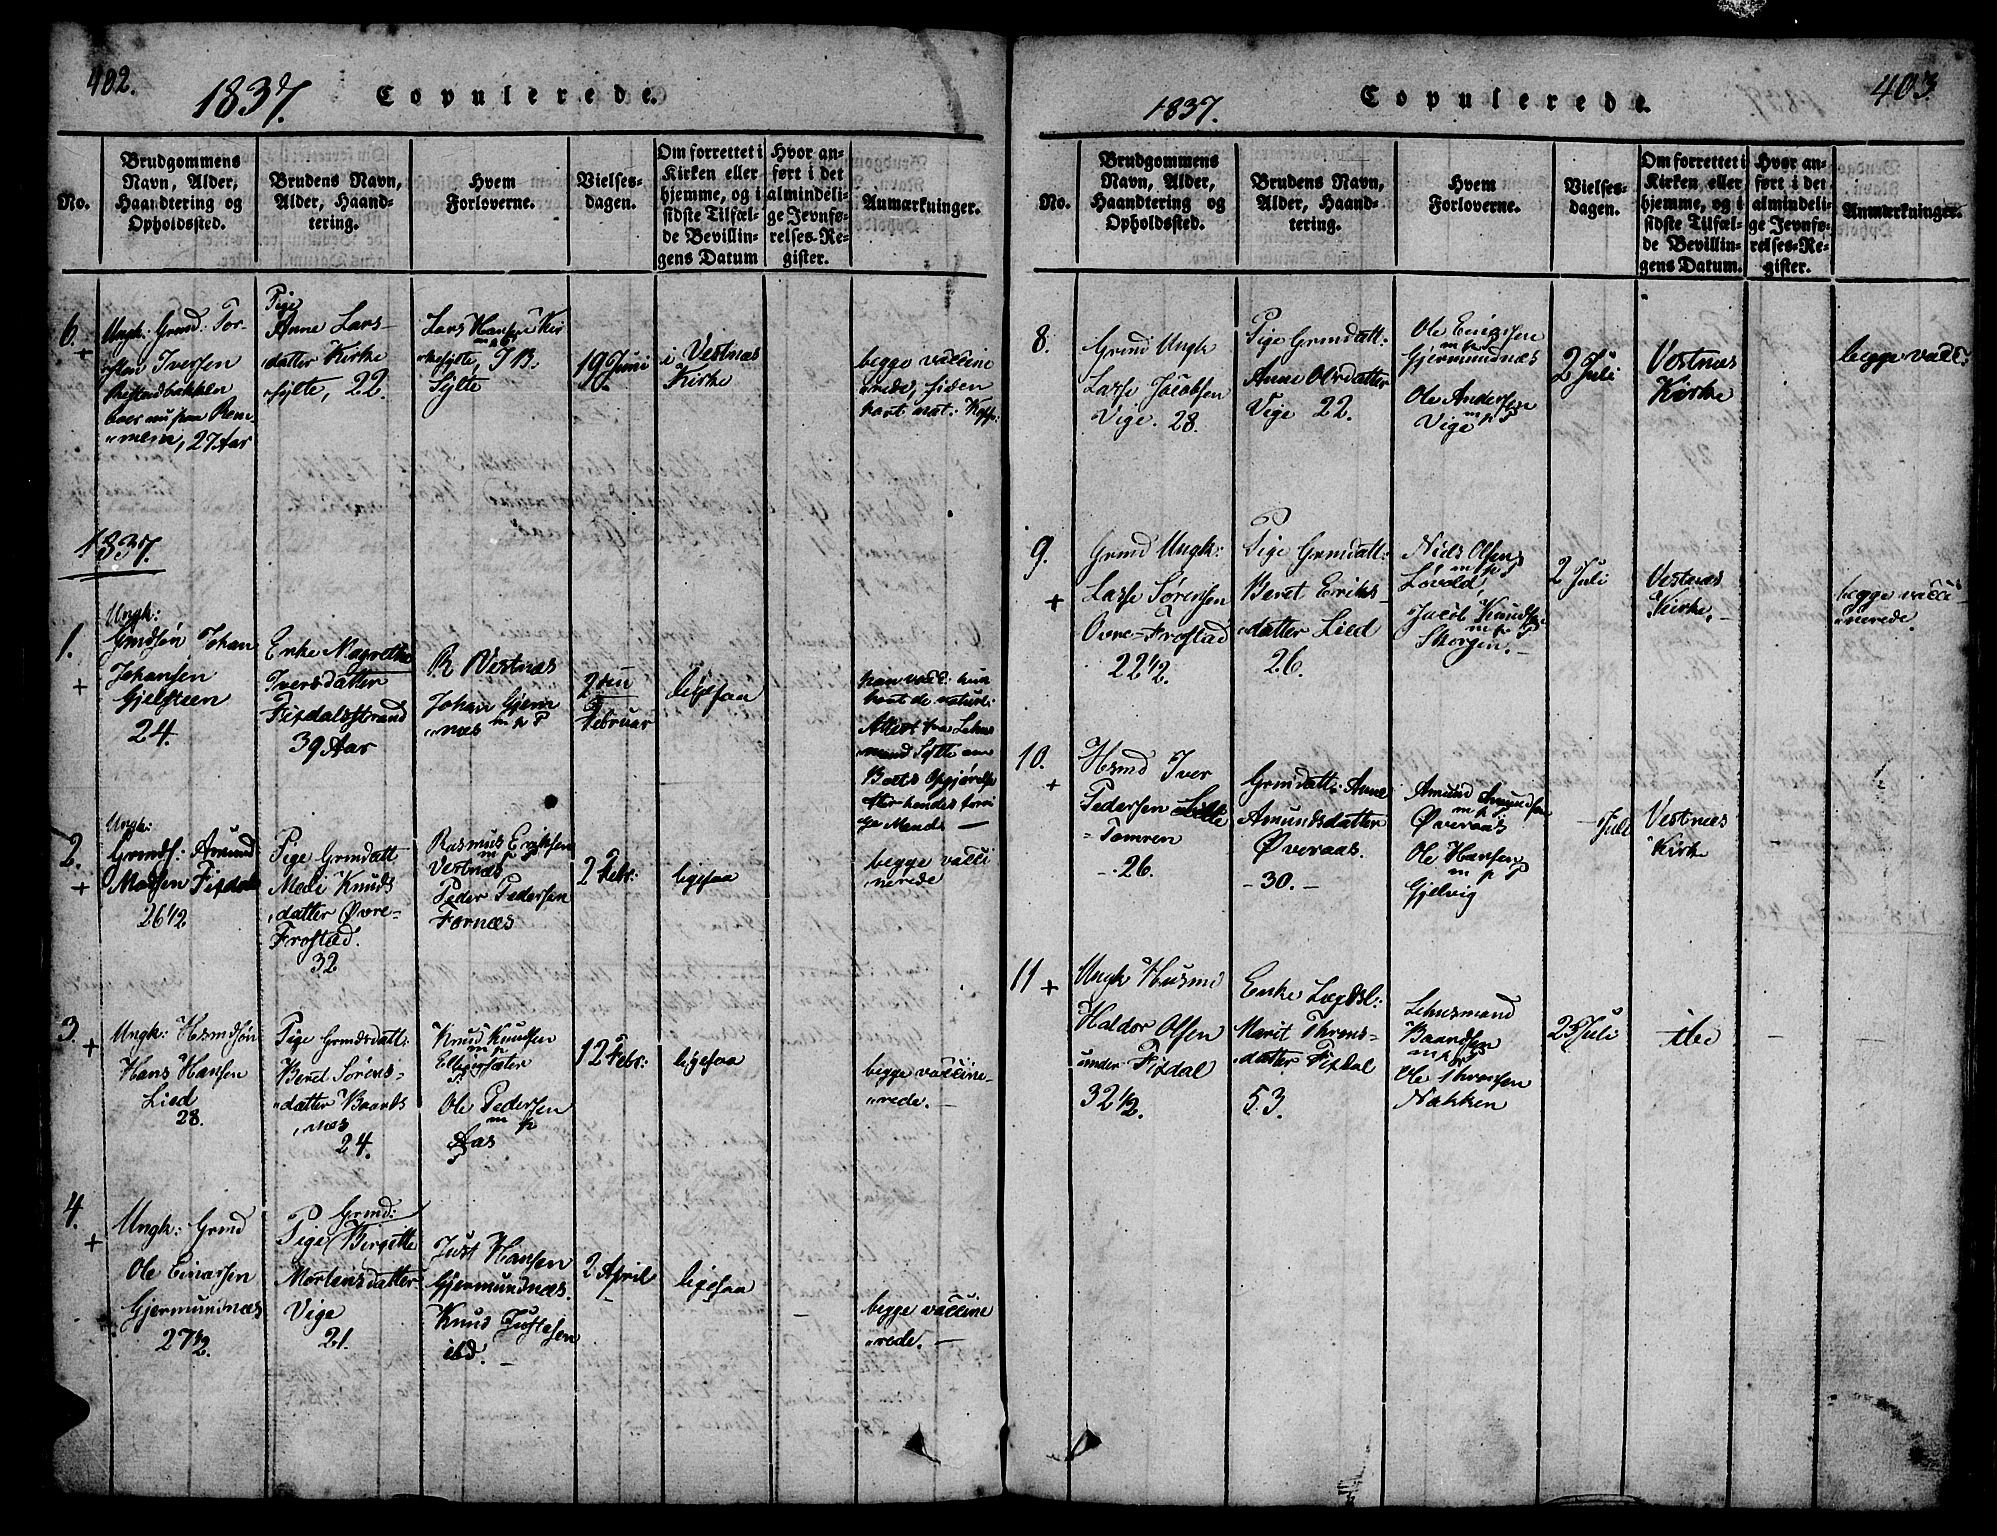 402.
1837.
Copulerede.
No.
Brudgommens
Navn, Alder,
Haandtering og
Opholdssted.
Brudens Navn,
Alder, Haand-
tering.
Hvem
Forloverne.
Vielses-
dagen.
Om forrettet i
Kirken eller
hjemme, og i
sidste Tilfæl-
de Bevillin-
gens Datum
Hvor an-
ført i det
almindeli-
ge Jevnfø-
relses-Re-
gister.
Anmærkninger.
6.
+
Ungk: Grmd: Tor-
sten Iversen
Restadbakken
boer nu paa Rem-
"mem, 27 Aar
Pige
Anne Lars-
datter Kirke
"sylte, 22.
Lars Hansen Kir
"kesylte,
Sylte
19 Juni
i Vestnæs
Kirke
begge vaccine
"rede, siden
1837.
1.
+
Ungk:
Grmdsøn Johan
Johansen
Gjelsteen
24.
Enke Magrethe
Iversdatter
Fixdalsstrand
39 Aar
R Vestnæs
Johan Gjerm
"næs m p P
2den
Februar
ligesaa
han vacc: hun
havt de naturl:
Attest fra Lehns
mand Sylte om
Boets Opgjørelse
efter hendes forri
ge Mand. —
2.
+
Ungk:
Grmds: Amund
Madsen Fixdal
26 1/2
Pige Grmdatt
Mali Knuds
datter Øvre-
Frostad.
32
Rasmus Eriksen
Vestnæs
Peder Pedersen
Fornæs
2 Febr:
ligesaa
begge vacci
nerede
3.
+
Ungk: Hsmdsøn
Hans Hansen
Lied
28.
Pige Grmdsdatt:
Beret Sørens-
"datter Baards
"næs
24.
Knud Knudsen
m p
Ellingsæter
Ole Pedersen
m p
Aas
12 Febr:
ligesaa
begge vaccine-
"rede. —
4.
+
Ungk: Grmd
Ole Einarsen
Gjermundnæs
27 1/2.
Grmd:
Pige Birgitte
Mortensdatter
Vige
21.
Just Hansen
Gjermundnæs.
Knud Justesen
ibd. —
2 April
ligesaa
begge vaccine
"rede. —
403.
1837.
Copulerede.
No.
Brudgommens
Navn, Alder,
Haandtering og
Opholdssted.
Brudens Navn,
Alder, Haand-
tering.
Hvem
Forloverne.
Vielses-
dagen.
Om forrettet i
Kirken eller
hjemme, og i
sidste Tilfæl-
de Bevillin-
gens Datum.
Hvor an-
ført i det
almindeli-
ge Jevnfø-
relses-Re-
gister.
Anmærkninger.
8.
Grmd Ungk
Lasse Jacobsen
Vige. 28.
Pige Grmdatt:
Anne Olsdatter
Vige 22.
Ole Einarsen
m p P
Gjermundnæs
Ole Andersen
Vige m p P
2 Juli
Vestnæs
Kirke
begge vacc:
9.
+
Grmd Ungk:
Lasse Sørensen
Øvre-Frostad
22 1/2.
Pige Grmdatt:
Beret Eriks-
"datter Lied
26.
Niels Olsen
m p P
Løvold,
Jacob Knudsen
m p P
Skorgen. —
2 Juli
Vestnæs
Kirke. —
begge vacci
"nerede.
10.
+
Hsmd Iver
Pedersen Lille
-Tomren
-. 26.
Grmdatt: Anne
Amundsdatter
Øveraas.
-30. -
Amund Amundsen
m p P
Øveraas
Ole Hansen
m p P
Gjelvig
- Juli
Vestnæs
Kirke
11
+
Ungk Husmd
Haldor Olsen
under Fixdal
32 1/2.
Enke
Marit Throns-
"datter Fixdal
53.
Lehnsmand
Baardsen
m p P
Ole Thronsen
Nakken
23 Juli
ibd